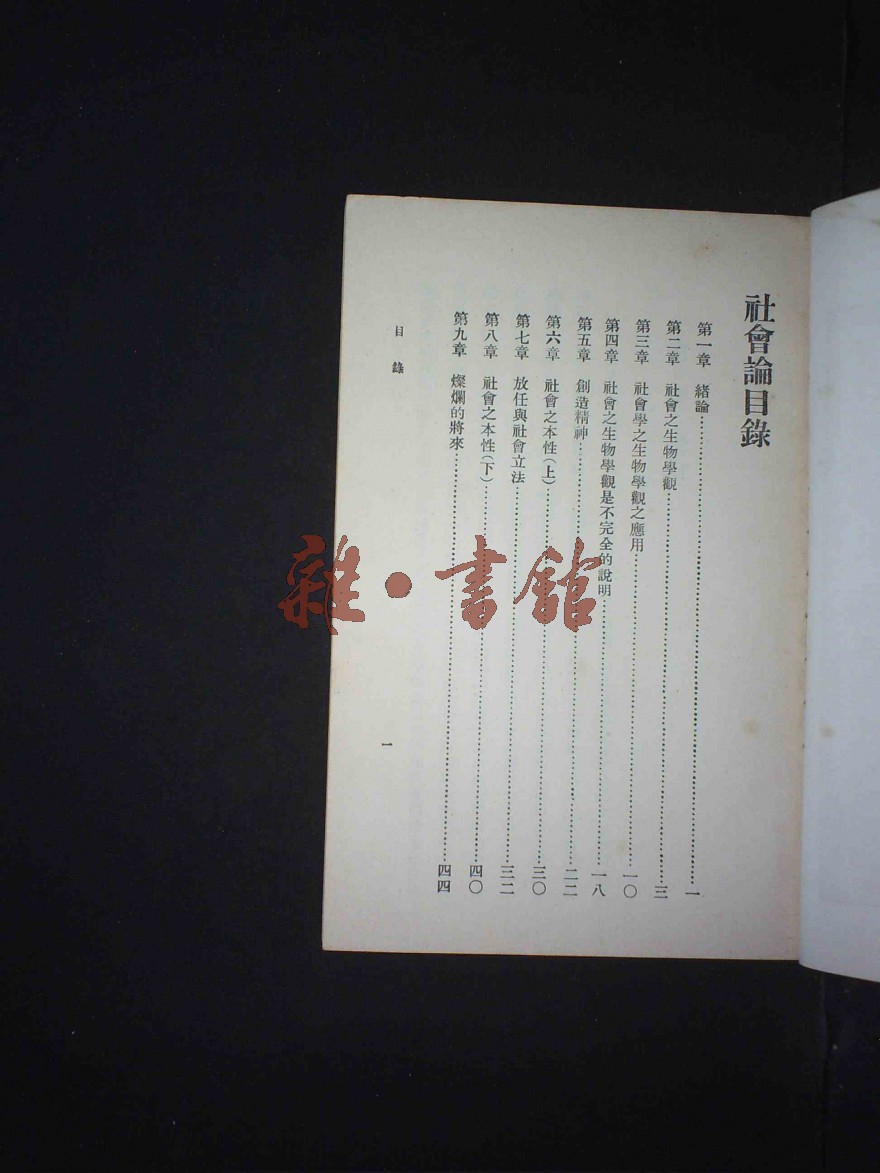 社會論目錄
第一章 緒論……一
第二章 社會之生物學觀……三
第三章 社會學之生物學觀之應用……一〇
第四章 社會之生物學觀是不完全的說明……一八
第五章 創造精神……二二
第六章 社會之本性(上)……三〇
第七章 放任與社會立法……三二
第八章 社會之本性(下)……四〇
第九章 燦爛的將來……四四
目錄
一
雜·書館